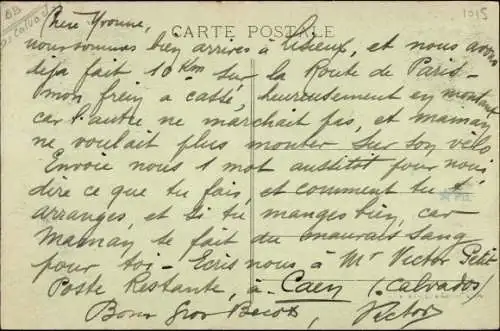 6B
Calvados
1015
CARTE POSTALE
Chère Yvonne,
nous sommes bien arrivés à Lisieux, et nous avons
déja fait 10 Km sur la Route de Paris -
mon frein a cassé, heureusement en montant
car l'autre ne marchait pas, et maman
ne voulait plus monter sur son vélo
Envoie nous 1 mot aussitôt pour nous
dire ce que tu fais, et comment tu t'
arranges, et si tu manges bien, car
Maman se fait du mauvais sang
pour toi - Ecris nous à Mr Victor Petit
Poste Restante, à Caen (Calvados)
Bons Gros Becots, Victor